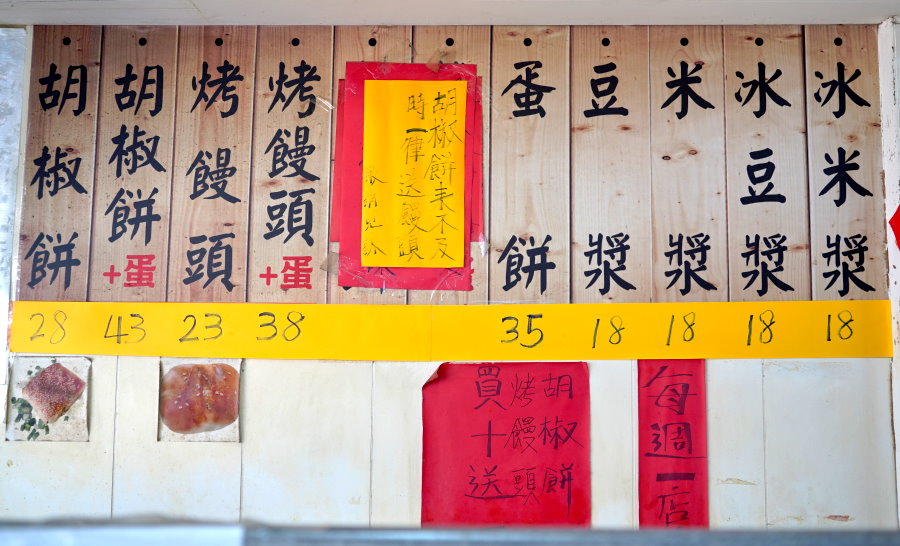 胡椒餅
胡椒餅+蛋
烤饅頭
烤饅頭+蛋
胡椒餅来不及
時一律送饅頭
蛋餅
豆漿
米漿
冰豆漿
冰米漿
28 43 23 38 35 18 18 18 18
胡椒餅
烤饅頭
買十送
每週一店